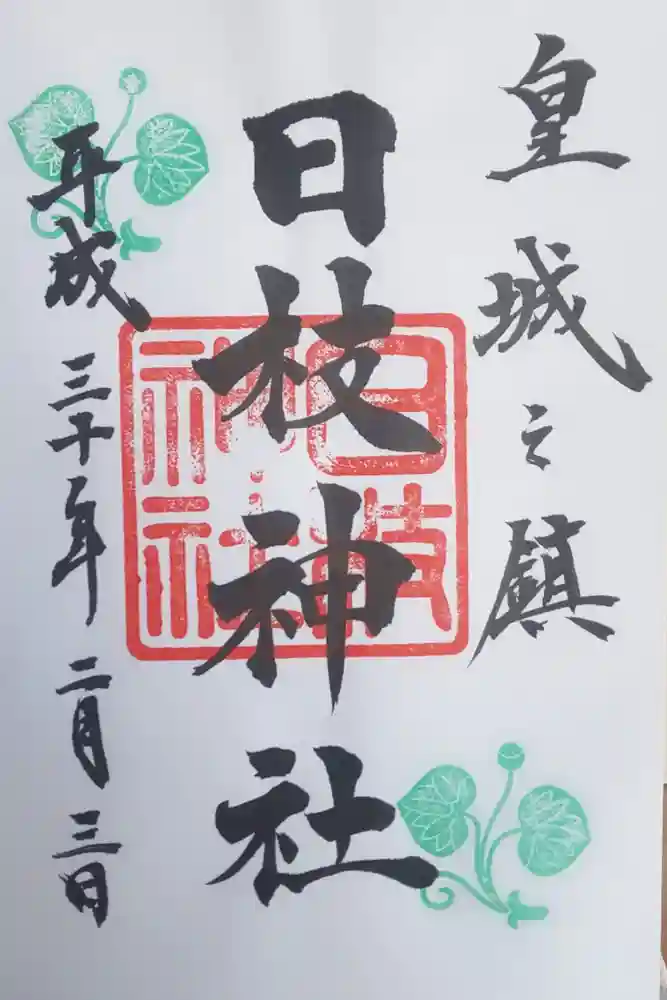 皇城之鎮
日枝神社
日枝神社
平成三十年二月三日